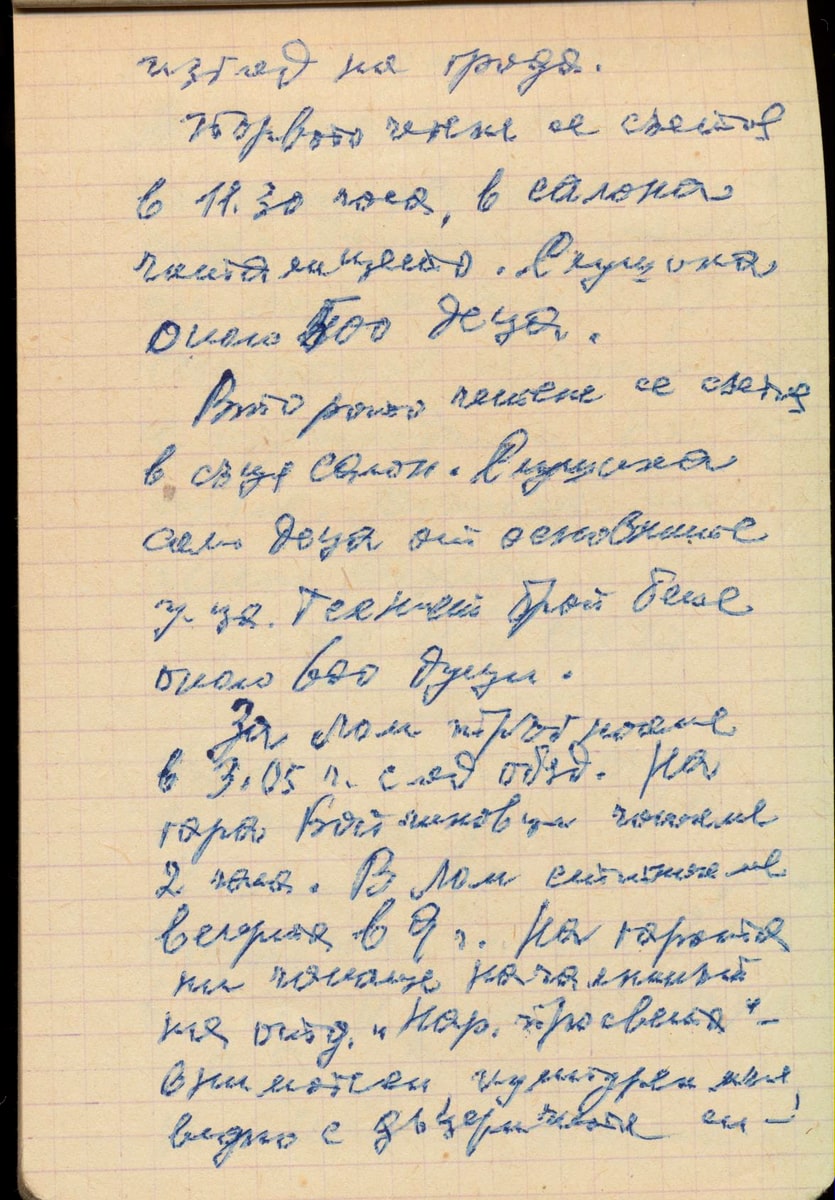 изглед на града.
Първото четене се състоя
в 11.30 часа, в салона
читалището. Слушаха
около 500 деца.
Второто четене се състоя
в същия салон. Слушаха
само деца от основните
у-ща. Техният брой беше
около 600 души.
За Лом тръгнахме
в 3.05 ч. след обяд. На
гара Бойчиновци чакахме
2 часа. В Лом стигнахме
вечерта в 9 ч. На гарата
ни чакаше началникът
на отд. „Нар. просвета“ –
внимателен културен
ведно с дъщеричката си –